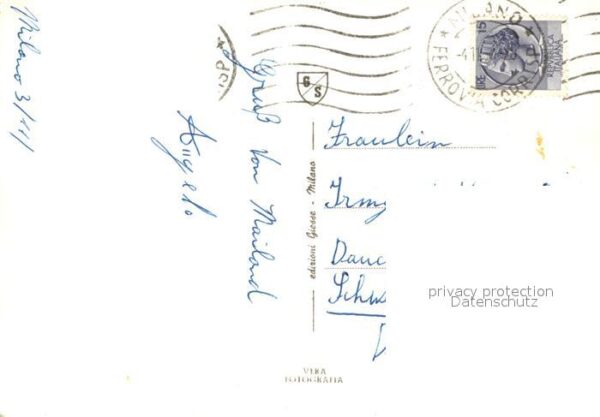 Milano 3/11/
Gruß von Mailand
Angelo
G S
edizioni Giesse - Milano
MILANO
FERROVIA CORR
15
LIRE
REPUBBLICA
ITALIANA
Fräulein
Irmg
Schw
privacy protection
Datenschutz
VERA
FOTOGRAFIA